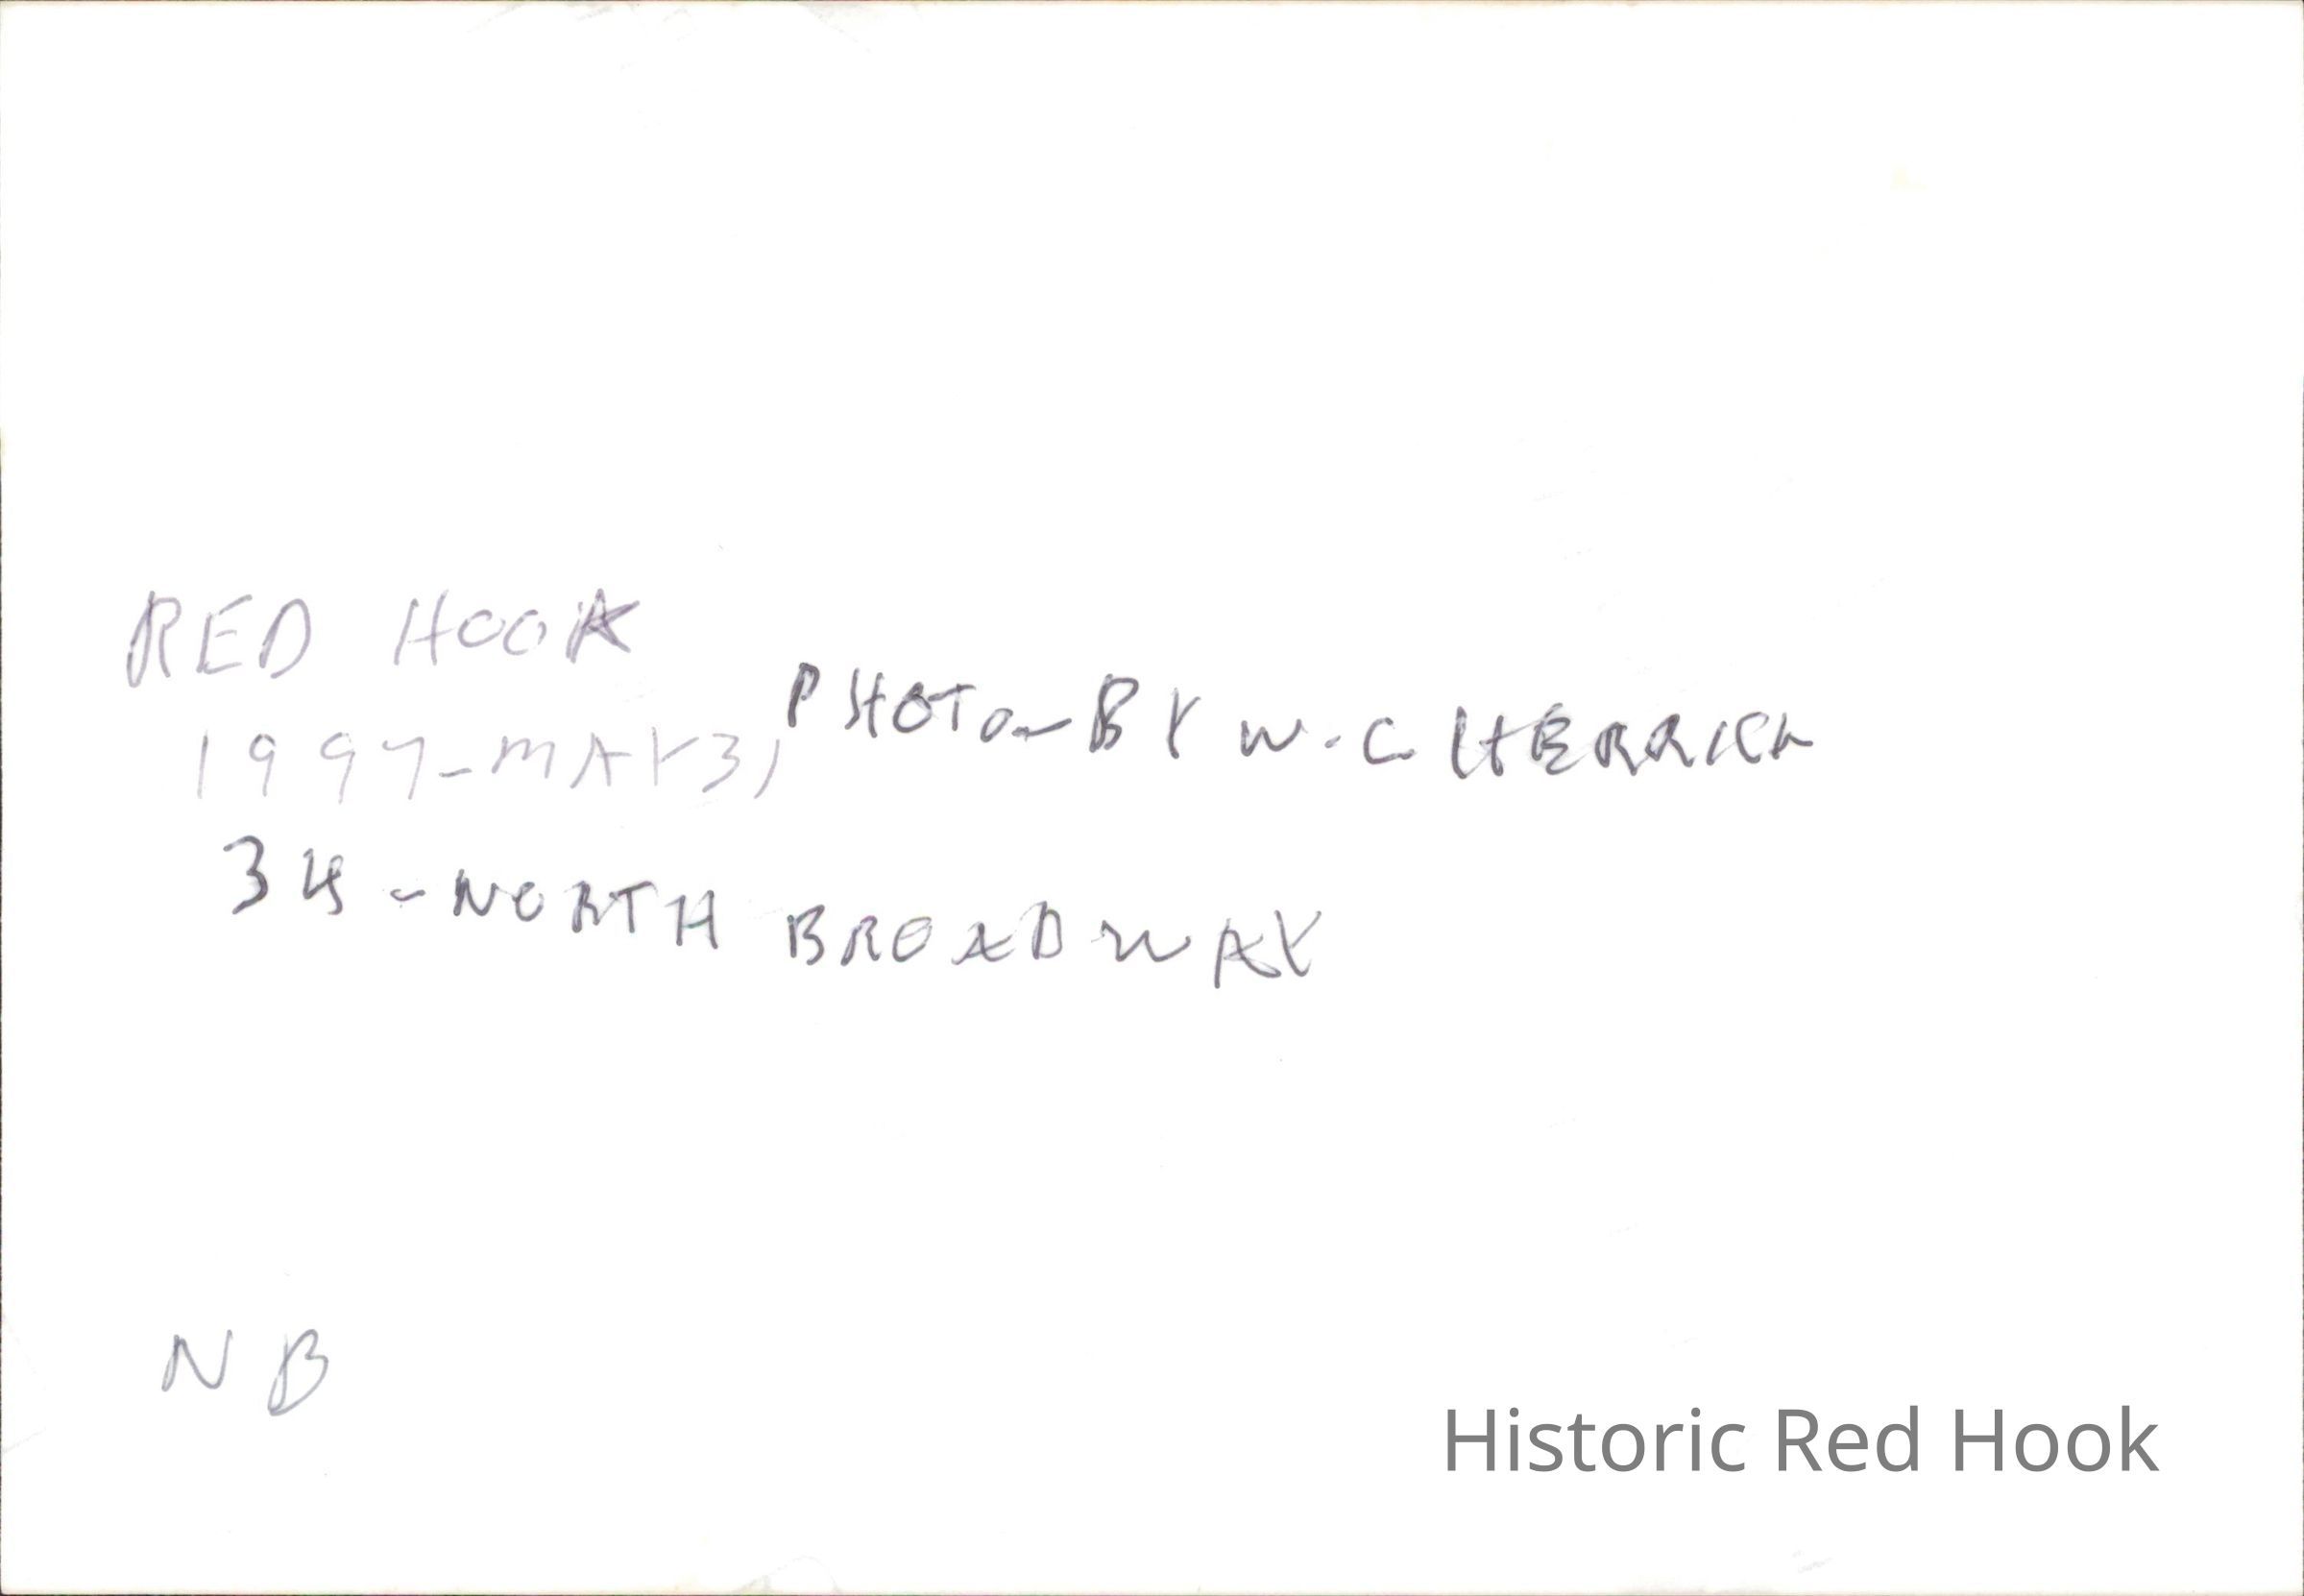 RED HOOK
1997-MAY 31 PHOTO-BY W.C HERRICK
34-NORTH BROADWAY
NB
Historic Red Hook